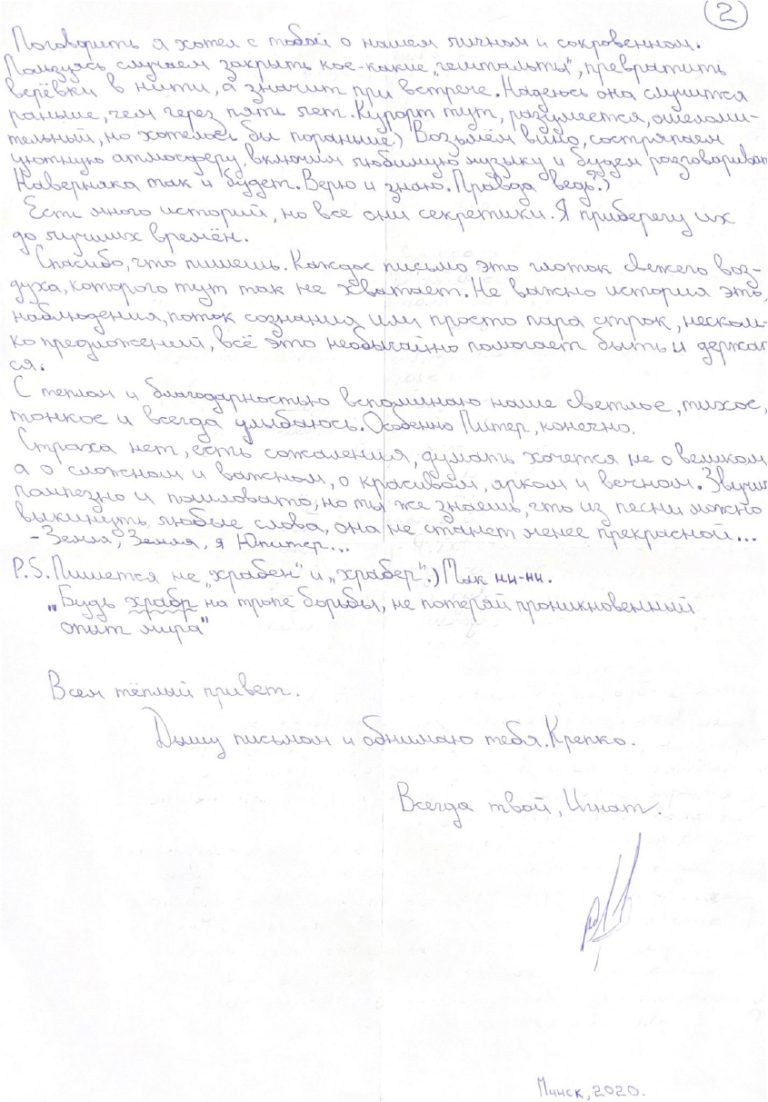 2
Поговорить я хотел с тобой о нашем личном и сокровенном.
Пользуясь случаем закрыть кое-какие „гештальты", превратить
верёвки в нити, а значит при встрече. Надеюсь она случится
раньше, чем через пять лет. Курорт тут, разумеется, ошеломи-
тельный, но хотелось бы пораньше) Возьмём вино, состряпаем
уютную атмосферу, включим любимую музыку и будем разговариват
Наверняка так и будет. Верю и знаю. Правда ведь?)
Есть много историй, но все они секретики. Я приберегу их
до лучших времён.
Спасибо, что пишешь. Каждое письмо это глоток свежего воз-
духа, которого тут так не хватает. Не важно история это,
наблюдения, поток сознания или просто пара строк, несколь-
ко предложений, всё это необычайно помогает быть и держат
ся.
С теплом и благодарностью вспоминаю наше светлое, тихое,
тонкое и всегда улыбаюсь. Особенно Питер, конечно.
Страха нет, есть сожаления, думать хочется не о великом
а о сложном и важном, о красивом, ярком и вечном. Звучит
помпезно и пошловато, но ты же знаешь, что из песни можно
выкинуть любые слова, она не станет менее прекрасной...
- Земля, Земля, я Юпитер...
P.S. Пишется не „храбен" и „храбер".) Так ни-ни.
„Будь храбр на тропе борьбы, не потеряй проникновенный
опыт мира"
Всем тёплый привет.
Дышу письмом и обнимаю тебя. Крепко.
Всегда твой, Игнат.
Минск, 2020.